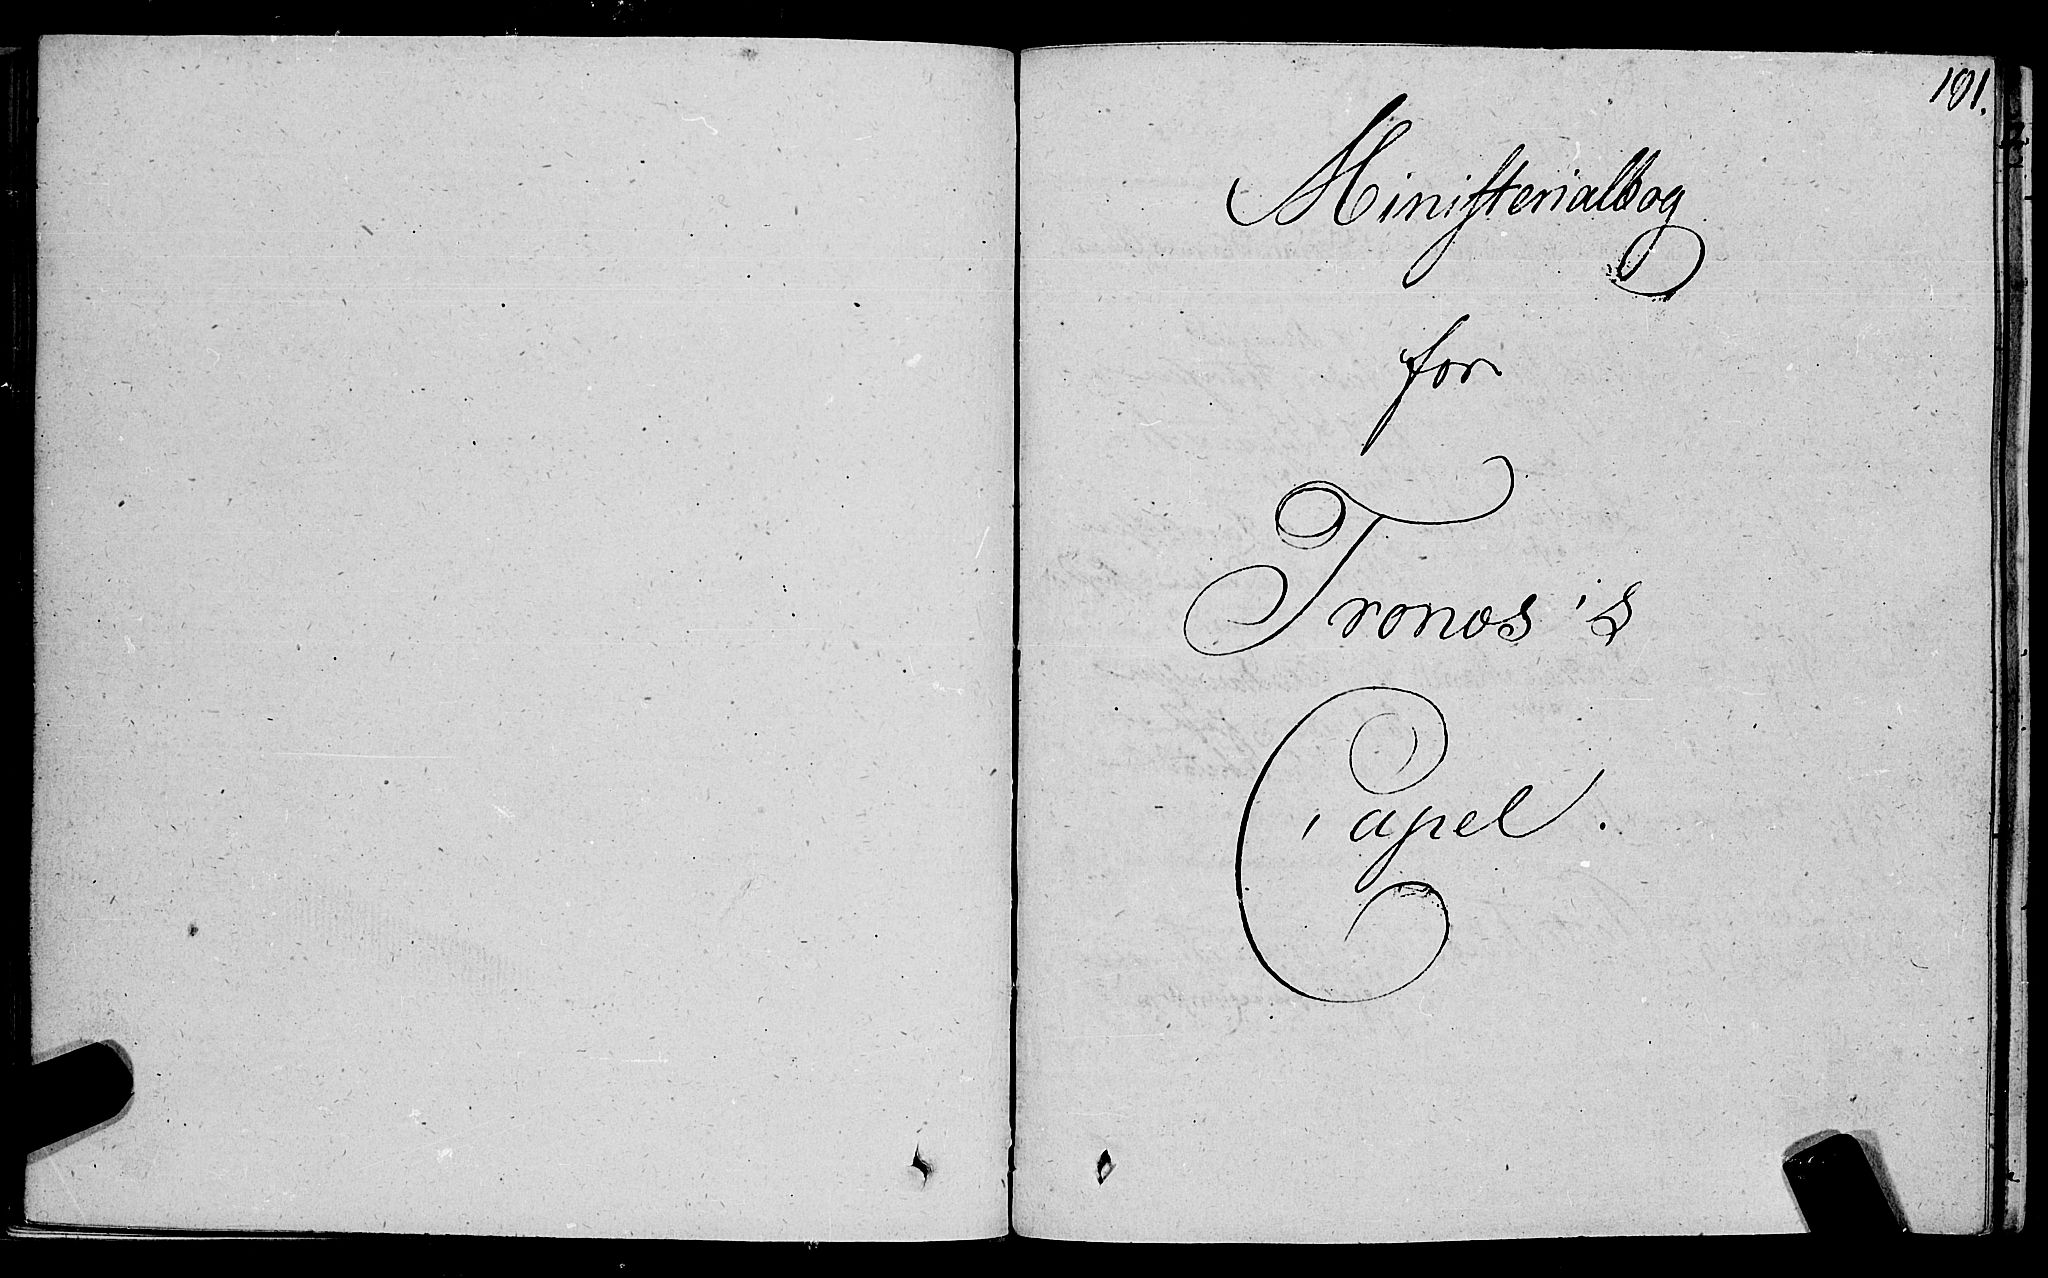 191.
Ministerialbog
for
Tronæs's
Capel.